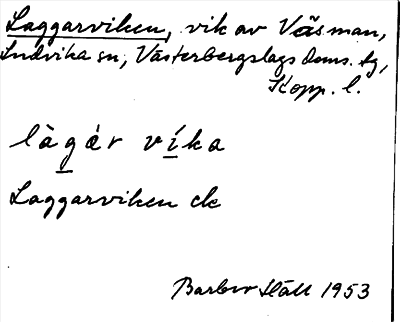 Laggarviken, vik av Väsman,
Ludvika sn, Västerbergslags doms. tg,
Kopp. l.
làgár víka
Laggarviken ck
Barbro Häll 1953